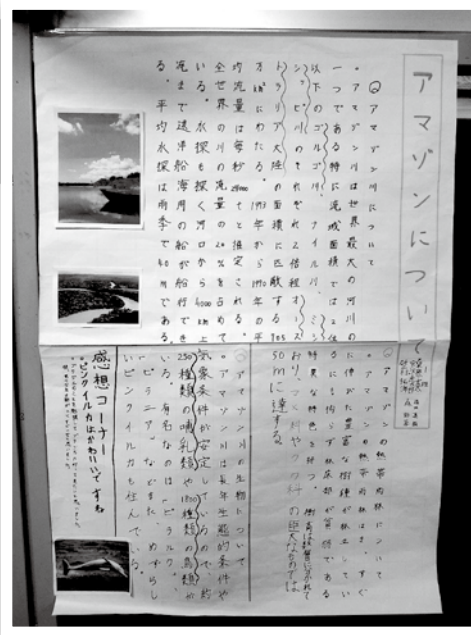 アマゾンについて
◎アマゾン川について
。アマゾン川は世界最大の河川の
一つである特に流域面積では2位
以下のコンゴ川、ナイル川、ミシ
シッピ川のそれぞれ2倍程オース
トラリア大陸の面積に匹敵する705
万km²にわたる。1973年から1990年の平
均流量は毎秒
と推定される。
全世界の川の流量の20%を占めて
いる。水深も深く河口から4000km上
流まで遠洋航海用の船が航行でき
る。平均水深は雨季で40mである。
◎アマゾンの熱帯雨林について
。アマゾンの熱帯雨林は、すぐ
に伸びた豊富な樹種が林立してい
るにも拘らず林床部が貧弱である
特異な特色を持つ。樹高は
おり、マメ科やクワ科の巨大なものでは、
50mに達する。
◎アマゾンの生物について
。アマゾン川は長年生態的条件や
気象条件が安定しているので、約
250種類の哺乳類や1800種類の鳥類が
いる。有名なのは「ピラルク」、
「ピラニア」などまた、めずらし
いピンクイルカも住んでいる。
感想コーナー
ピンクイルカはかわいいですね